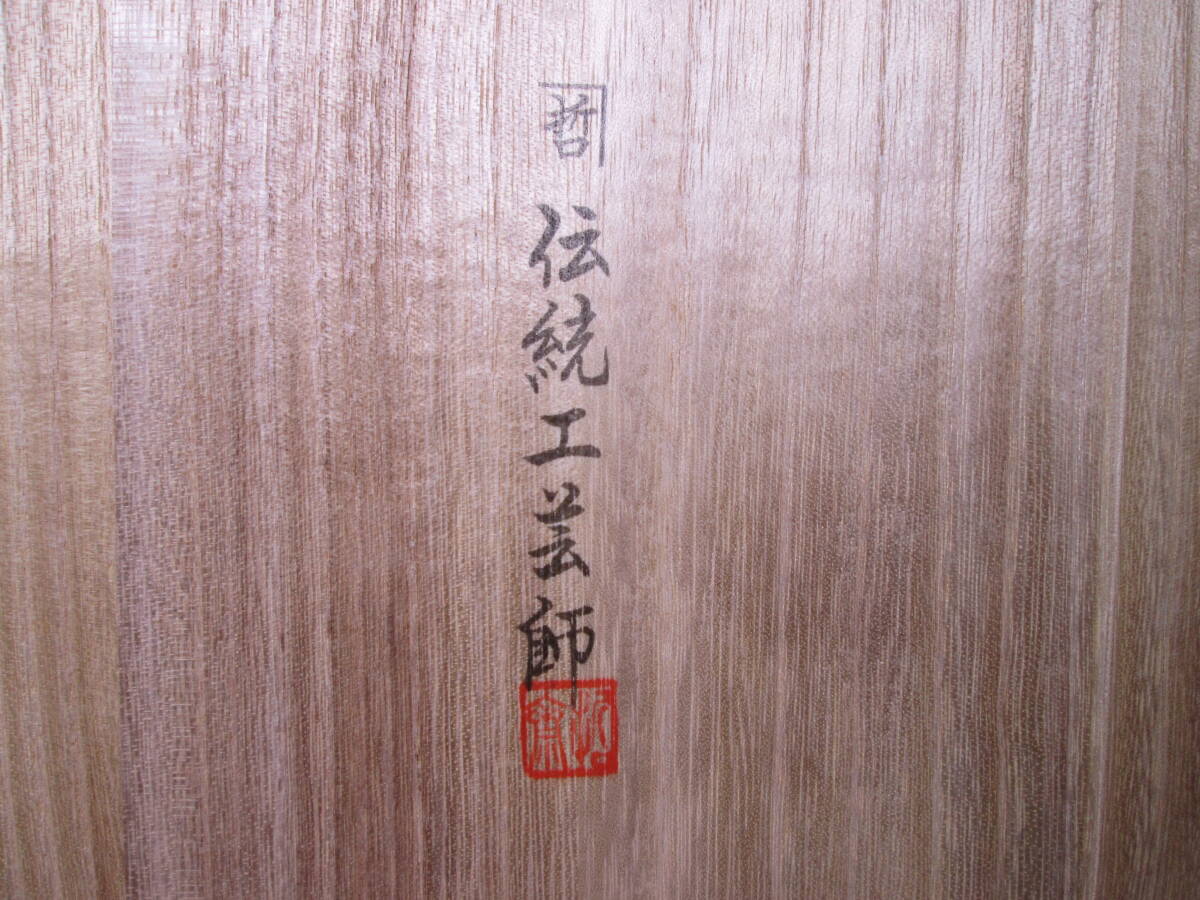 哲
伝統工芸師